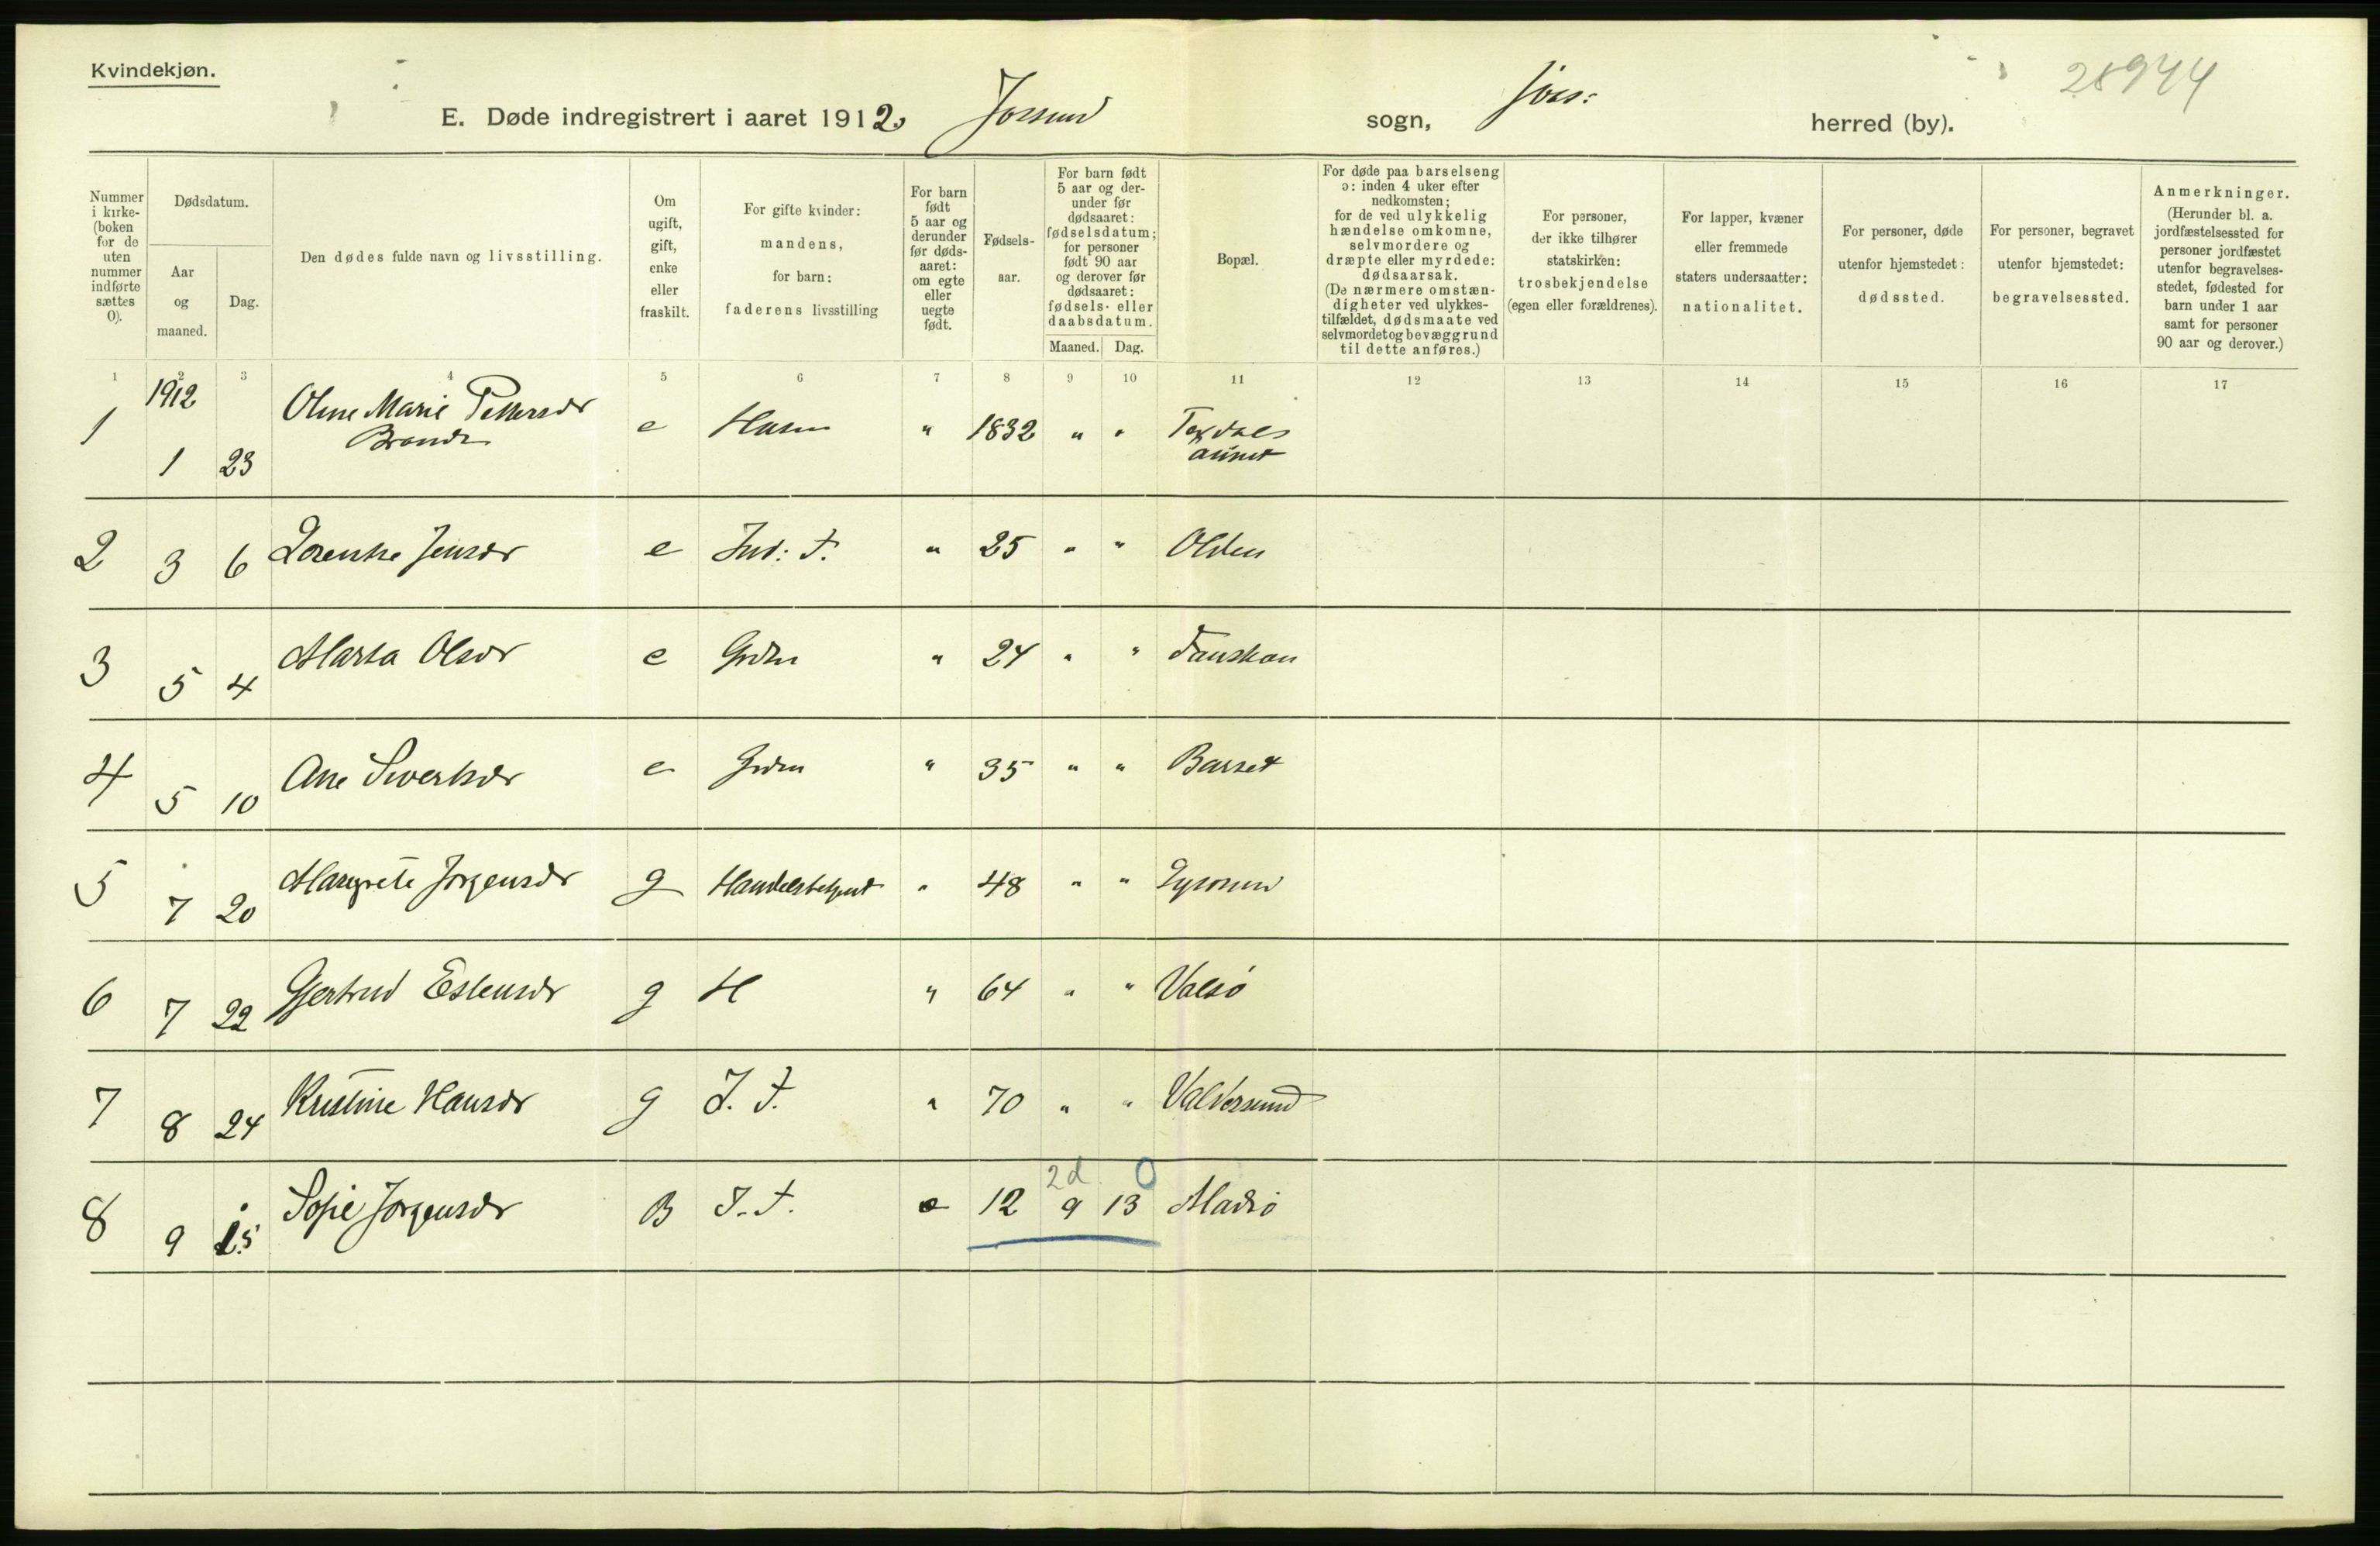 Kvindekjøn.
28944
E. Døde indregistrert i aaret 1912. Jøssund sogn, herred (by).
Nummer i kirke- (boken for de uten nummer indførte sættes 0).
Dødsdatum.
Aar og maaned.
Dag.
Den dødes fulde navn og livsstilling.
Om ugift, gift, enke eller fraskilt.
For gifte kvinder: mandens, for barn: faderens livsstilling
For barn født 5 aar og derunder før døds- aaret: om egte eller uegte født.
Fødsels- aar.
For barn født 5 aar og der- under før dødsaaret: fødselsdatum; for personer født 90 aar og derover før dødsaaret: fødsels- eller daabsdatum.
Maaned. Dag.
Bopæl.
For døde paa barselseng ɔ: inden 4 uker efter nedkomsten; for de ved ulykkelig hændelse omkomne, selvmordere og dræpte eller myrdede: dødsaarsak. (De nærmere omstæn- digheter ved ulykkes- tilfældet, dødsmaate ved selvmordet og bevæggrund til dette anføres.)
For personer, der ikke tilhører statskirken: trosbekjendelse (egen eller forældrenes).
For lapper, kvæner eller fremmede staters undersaatter: nationalitet.
For personer, døde utenfor hjemstedet: dødssted.
For personer, begravet utenfor hjemstedet: begravelsessted.
Anmerkninger. (Herunder bl. a. jordfæstelsessted for personer jordfæstet utenfor begravelses- stedet, fødested for barn under 1 aar samt for personer 90 aar og derover.)
1 2 3 4 5 6 7 8 9 10 11 12 13 14 15 16 17
1912
1 1 23 Oline Marie Pettersdr e Husm " 1832 " " Texdals
aunet
2 3 6 Lorentse Jensdr e Ind: F. " 25 " " Olden
3 5 4 Marta Olsdr e Grdm " 24 " "
4 5 10 Ane Sivertsdr e Grdm " 35 " " Barset
5 7 20 Margrete Jørgensdr g Handelsbetjent " 48 " "
6 7 22 Gjertrud Estensdr g H " 64 " " Valsø
7 8 24 Kristine Hansdr g I. F. " 70 " " Valdersund
2d 0
8 9 15 Sofie Jørgensdr B I. F. e 12 9 13 Madsø